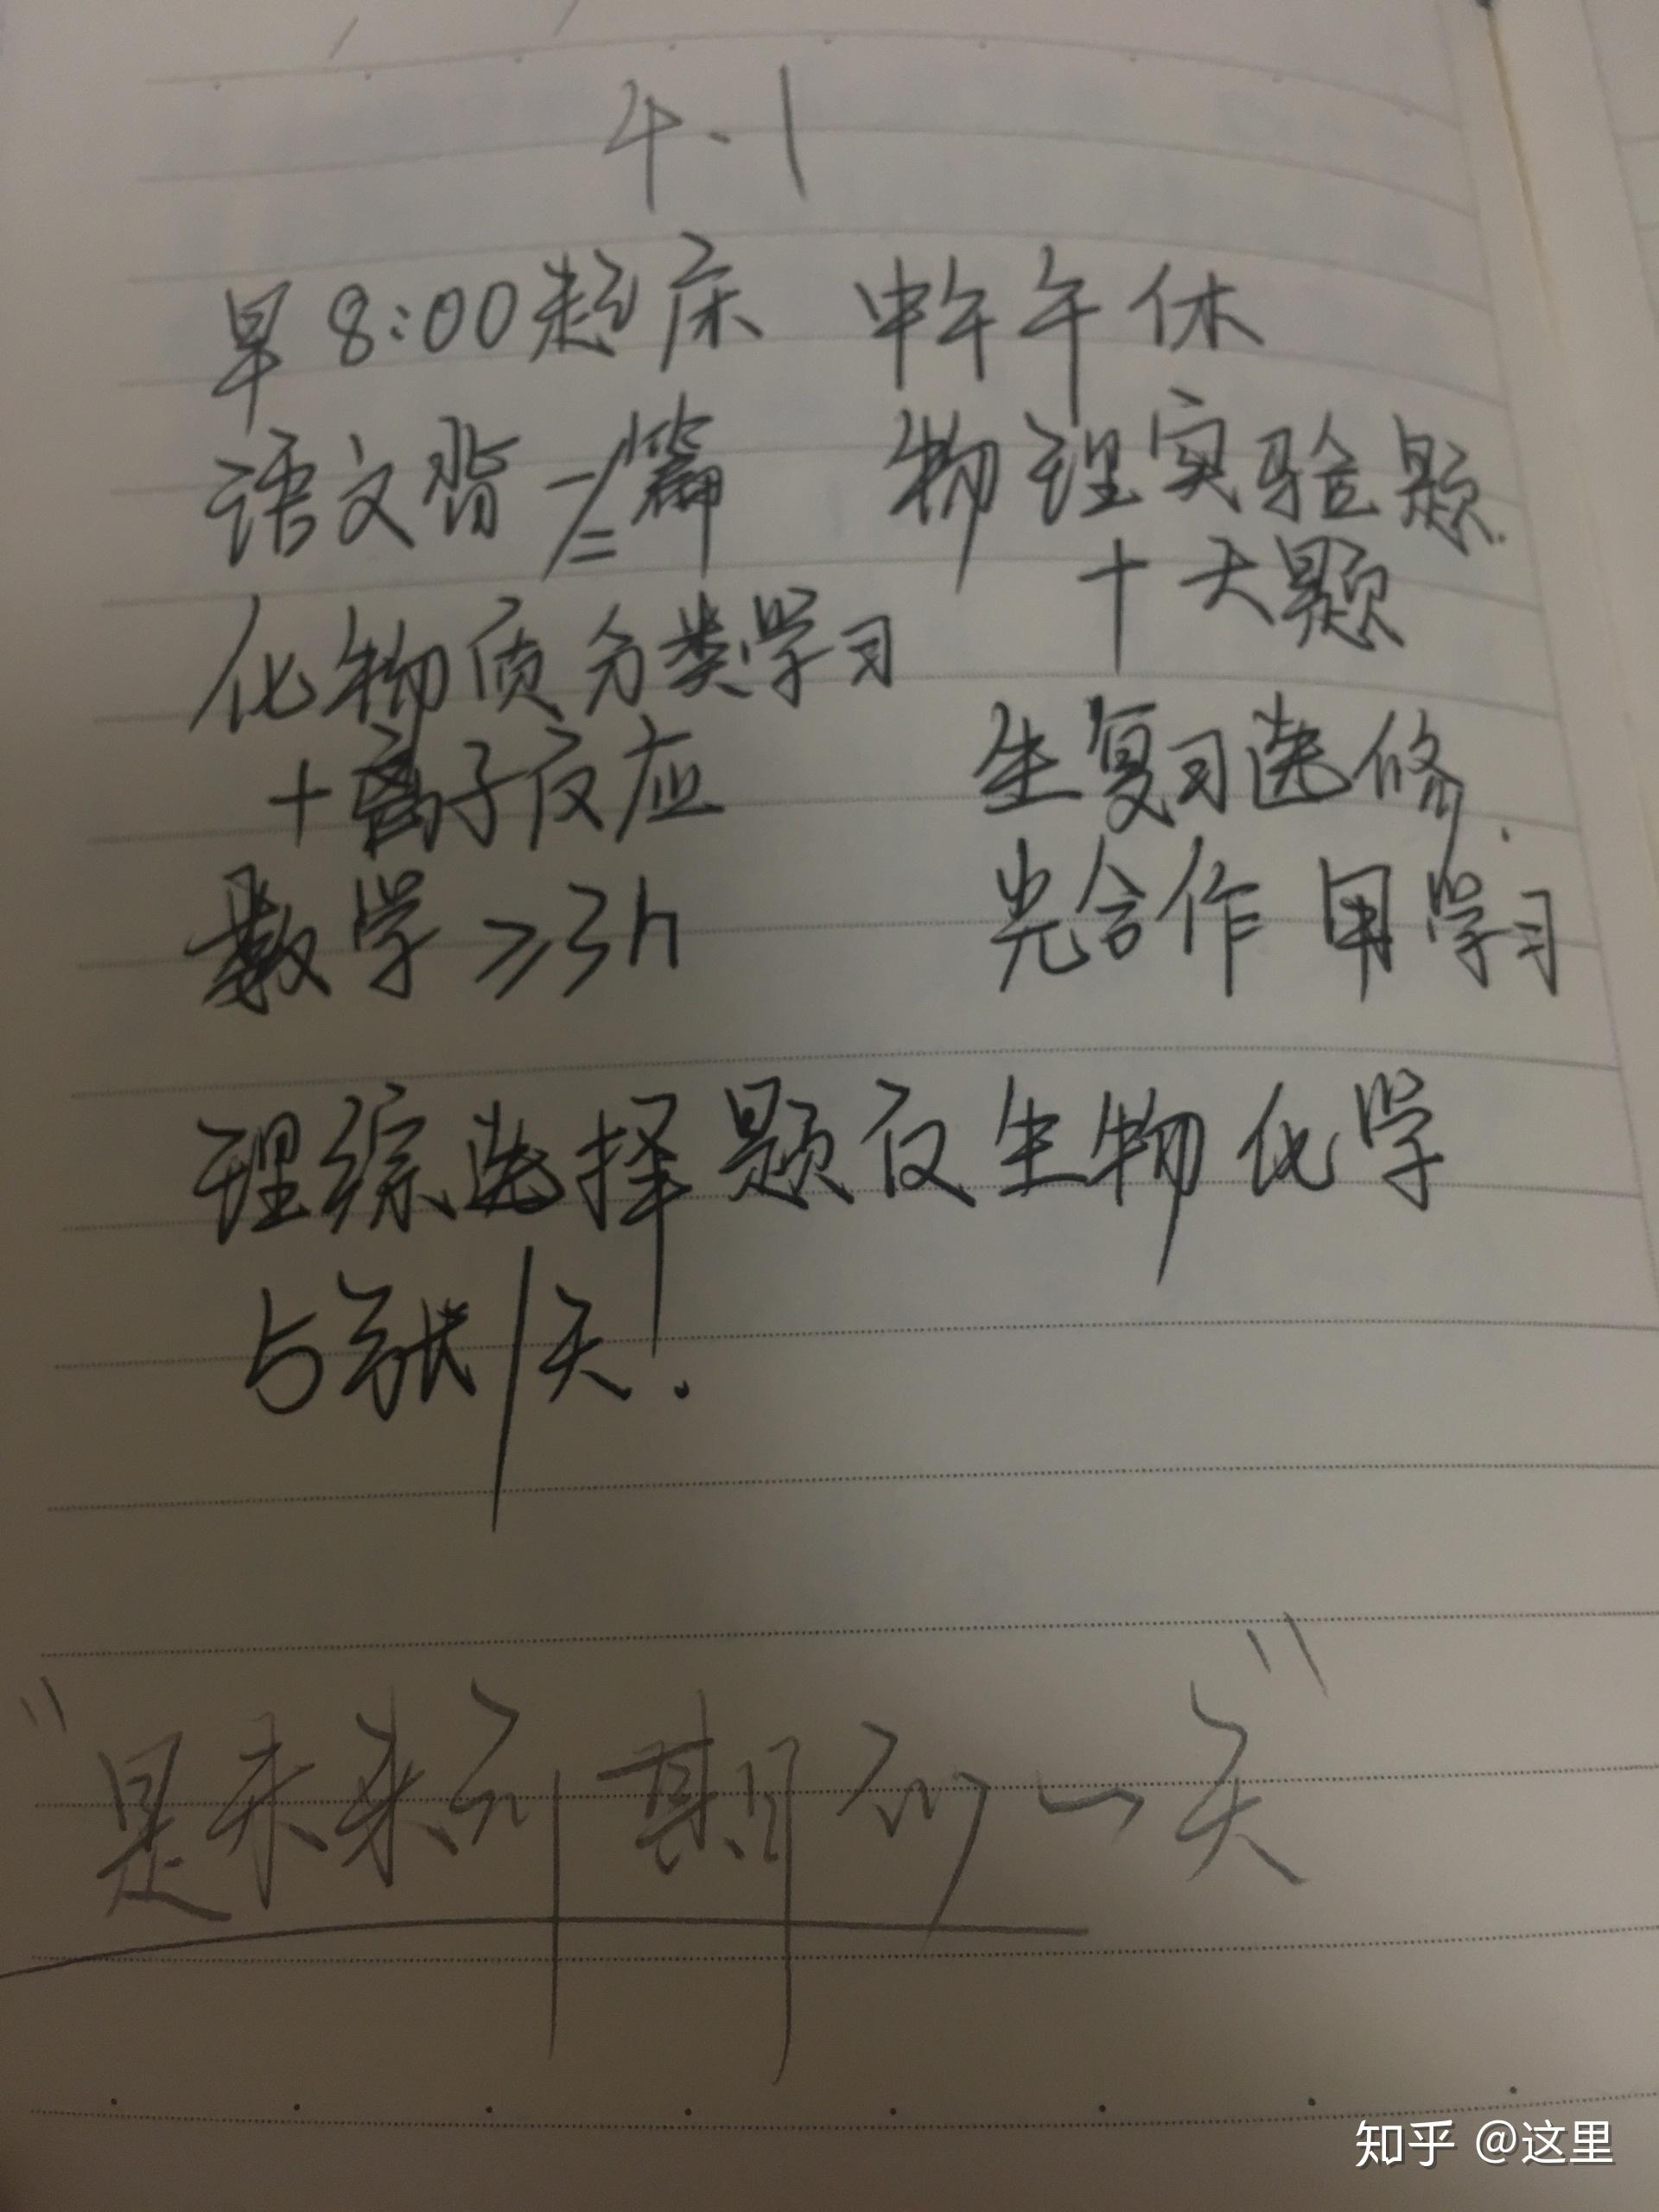 4.1
早8:00起床 中午午休
语文背一/二篇 物理实验题.
十大题
化物质分类学习
+离子反应 生复习选修.
数学≥3h 光合作用学习
理综选择题仅生物化学
5张/天.
"是未来到期的一天"
知乎 @这里